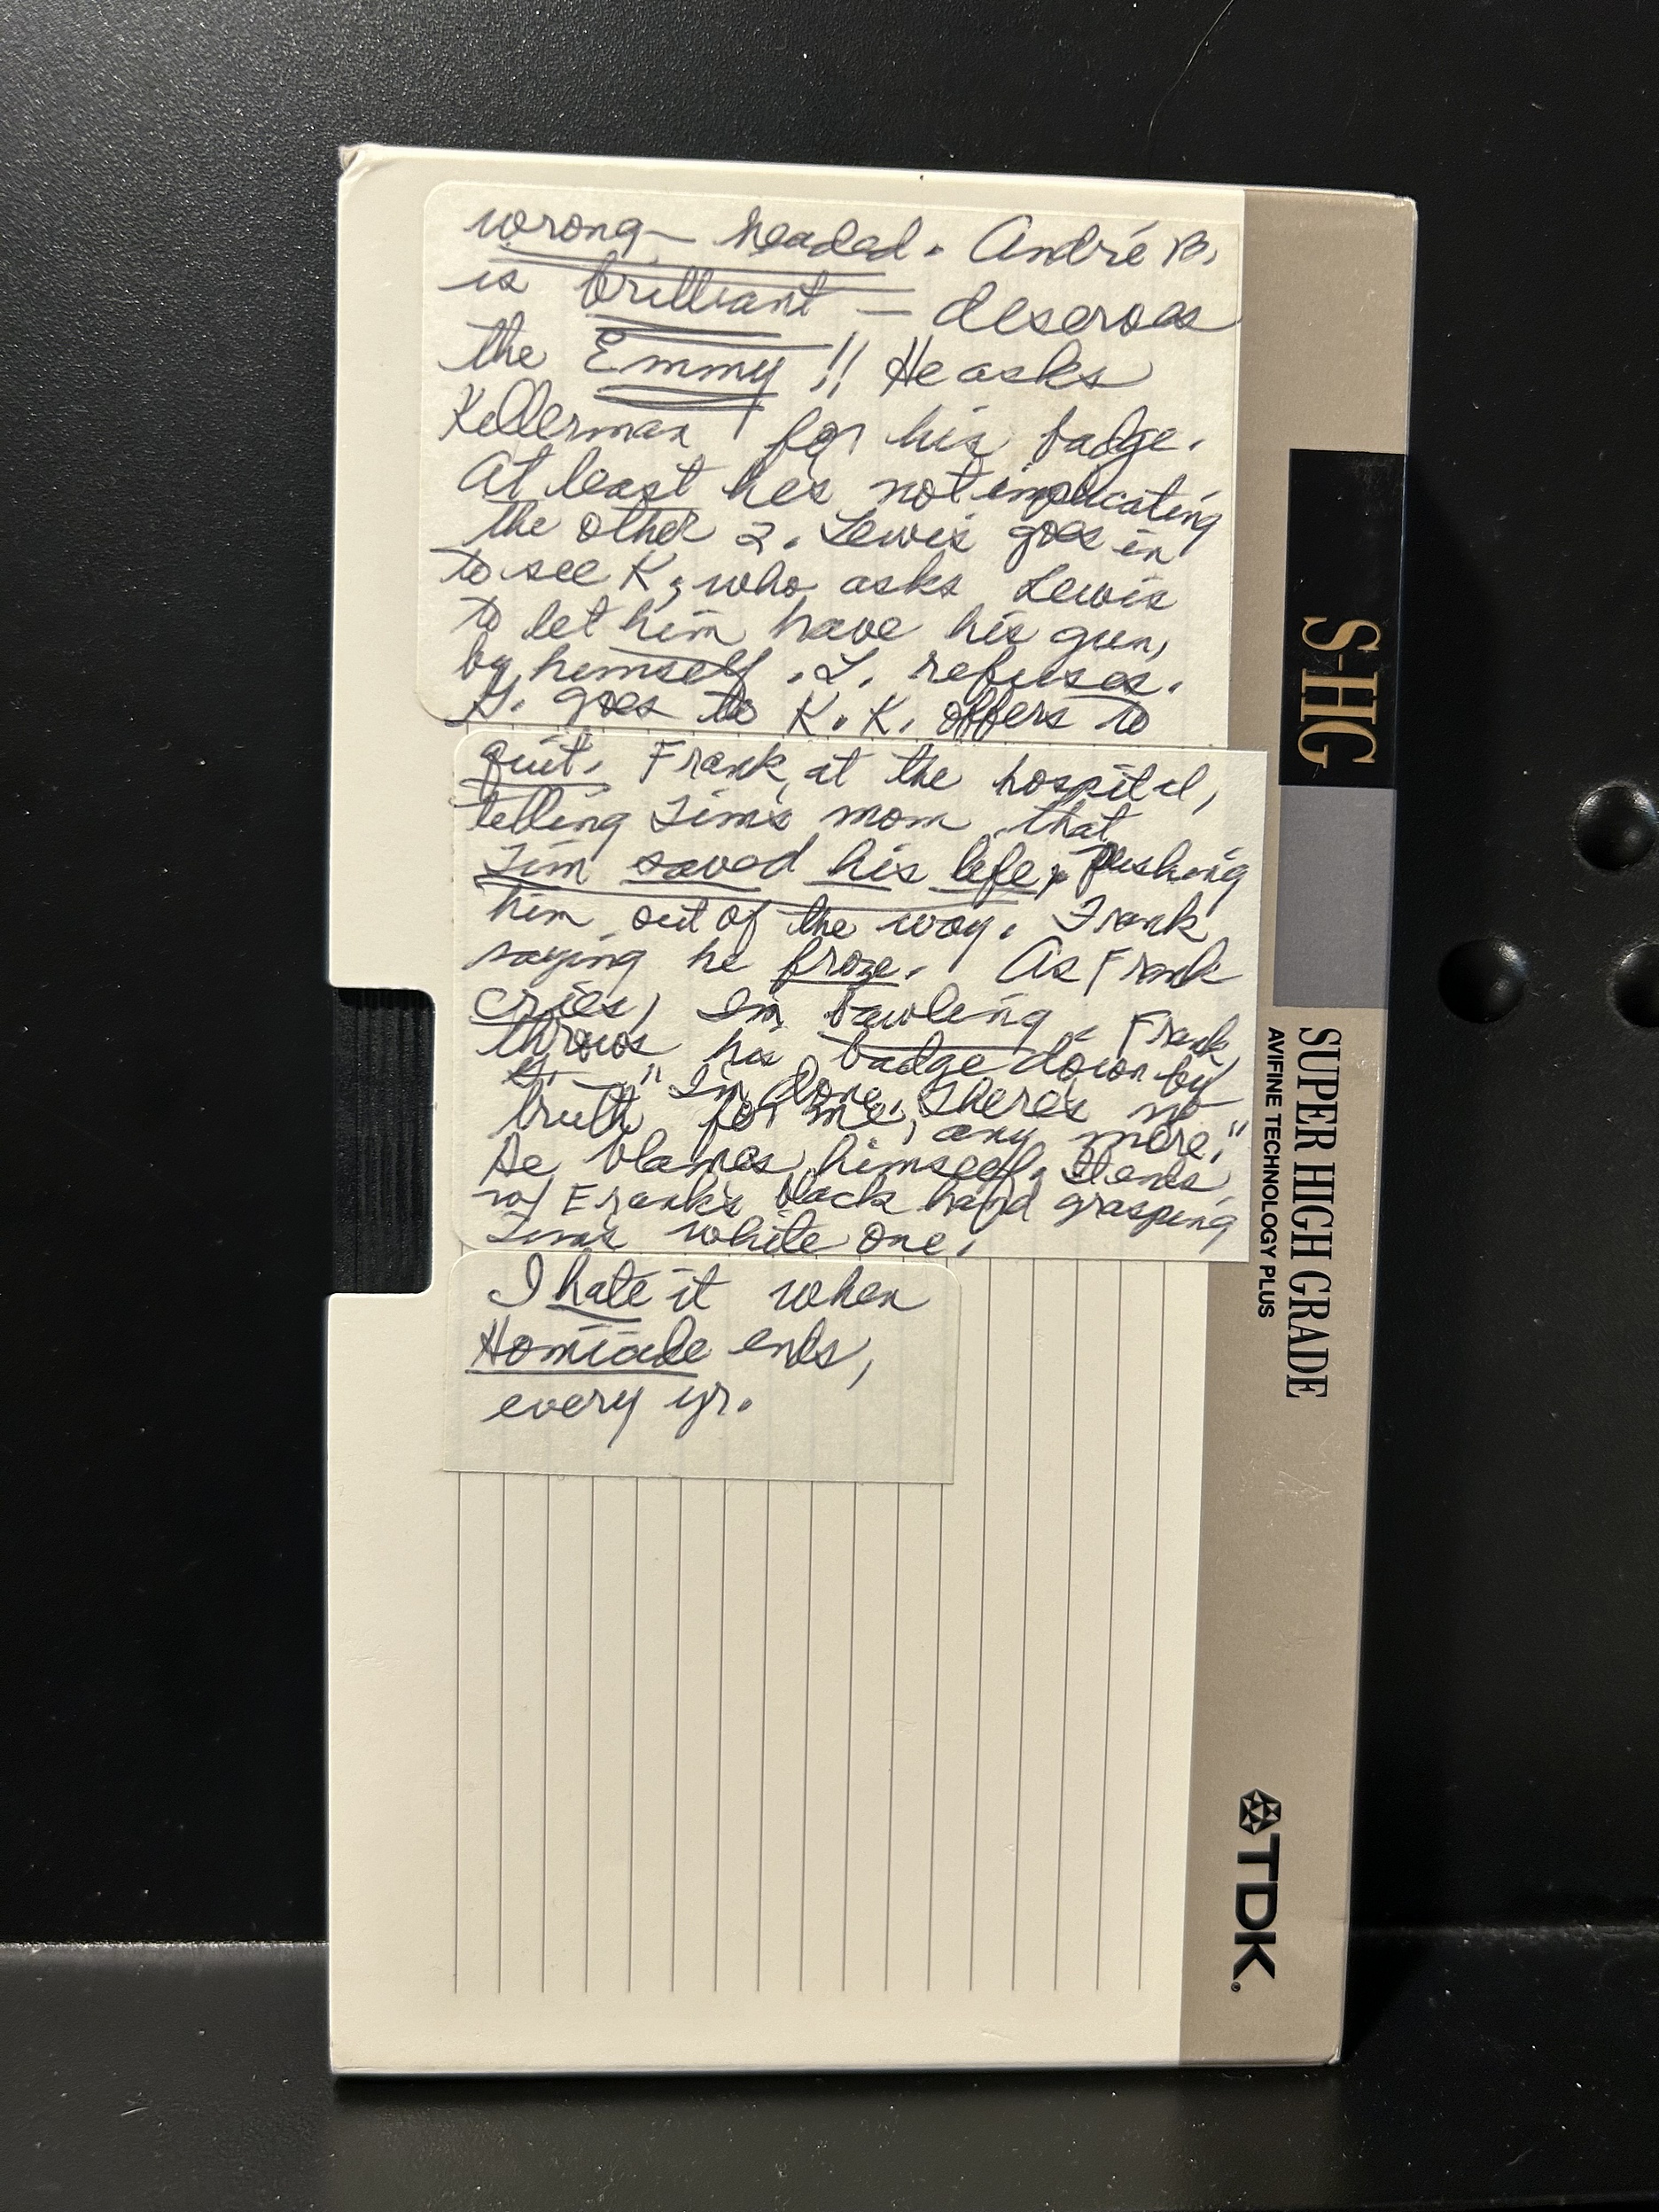 wrong-headed. André B.
is brilliant — deserves
the Emmy!! He asks
Kellerman for his badge.
At least he's not implicating
the other 2. Lewis goes in
to see K, who asks Lewis
to let him have his gun,
by himself. L. refuses.
G. goes to K. K. offers to
quit. Frank, at the hospital,
telling Tim's mom that
Tim saved his life, pushing
him out of the way. Frank
saying he froze. As Frank
cries, I'm bawling. Frank
throws his badge down by
G. — "I'm done, there's no
truth for me, any more."
He blames himself. Ends
w/ Frank's black hand grasping
Tim's white one.
I hate it when
Homicide ends,
every yr.
S-HG
SUPER HIGH GRADE
AVIFINE TECHNOLOGY PLUS
TDK®